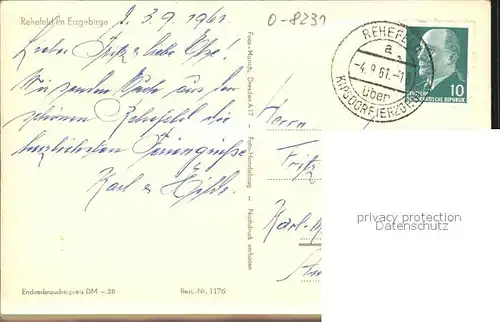 Rehefeld im Erzgebirge
d. 3.9.1961.
0-8231
Liebe Fritz u. liebe Else!
Wir senden Euch aus dem
schönen Rehefeld die
herzlichsten Feriengrüße
Karl u. Hilde.
Foto-Mönch, Dresden A 17 - Foto-Handabzug - Nachdruck verboten
REHEFE
a
-4.9.61.-1
über
KIPSDORF(ERZGEB
10
KRATISCHE REPUBLIK
Herrn
Fritz
Karl-M
privacy protection
Datenschutz
Endverbraucherpreis DM -.20
Best.-Nr. 1176